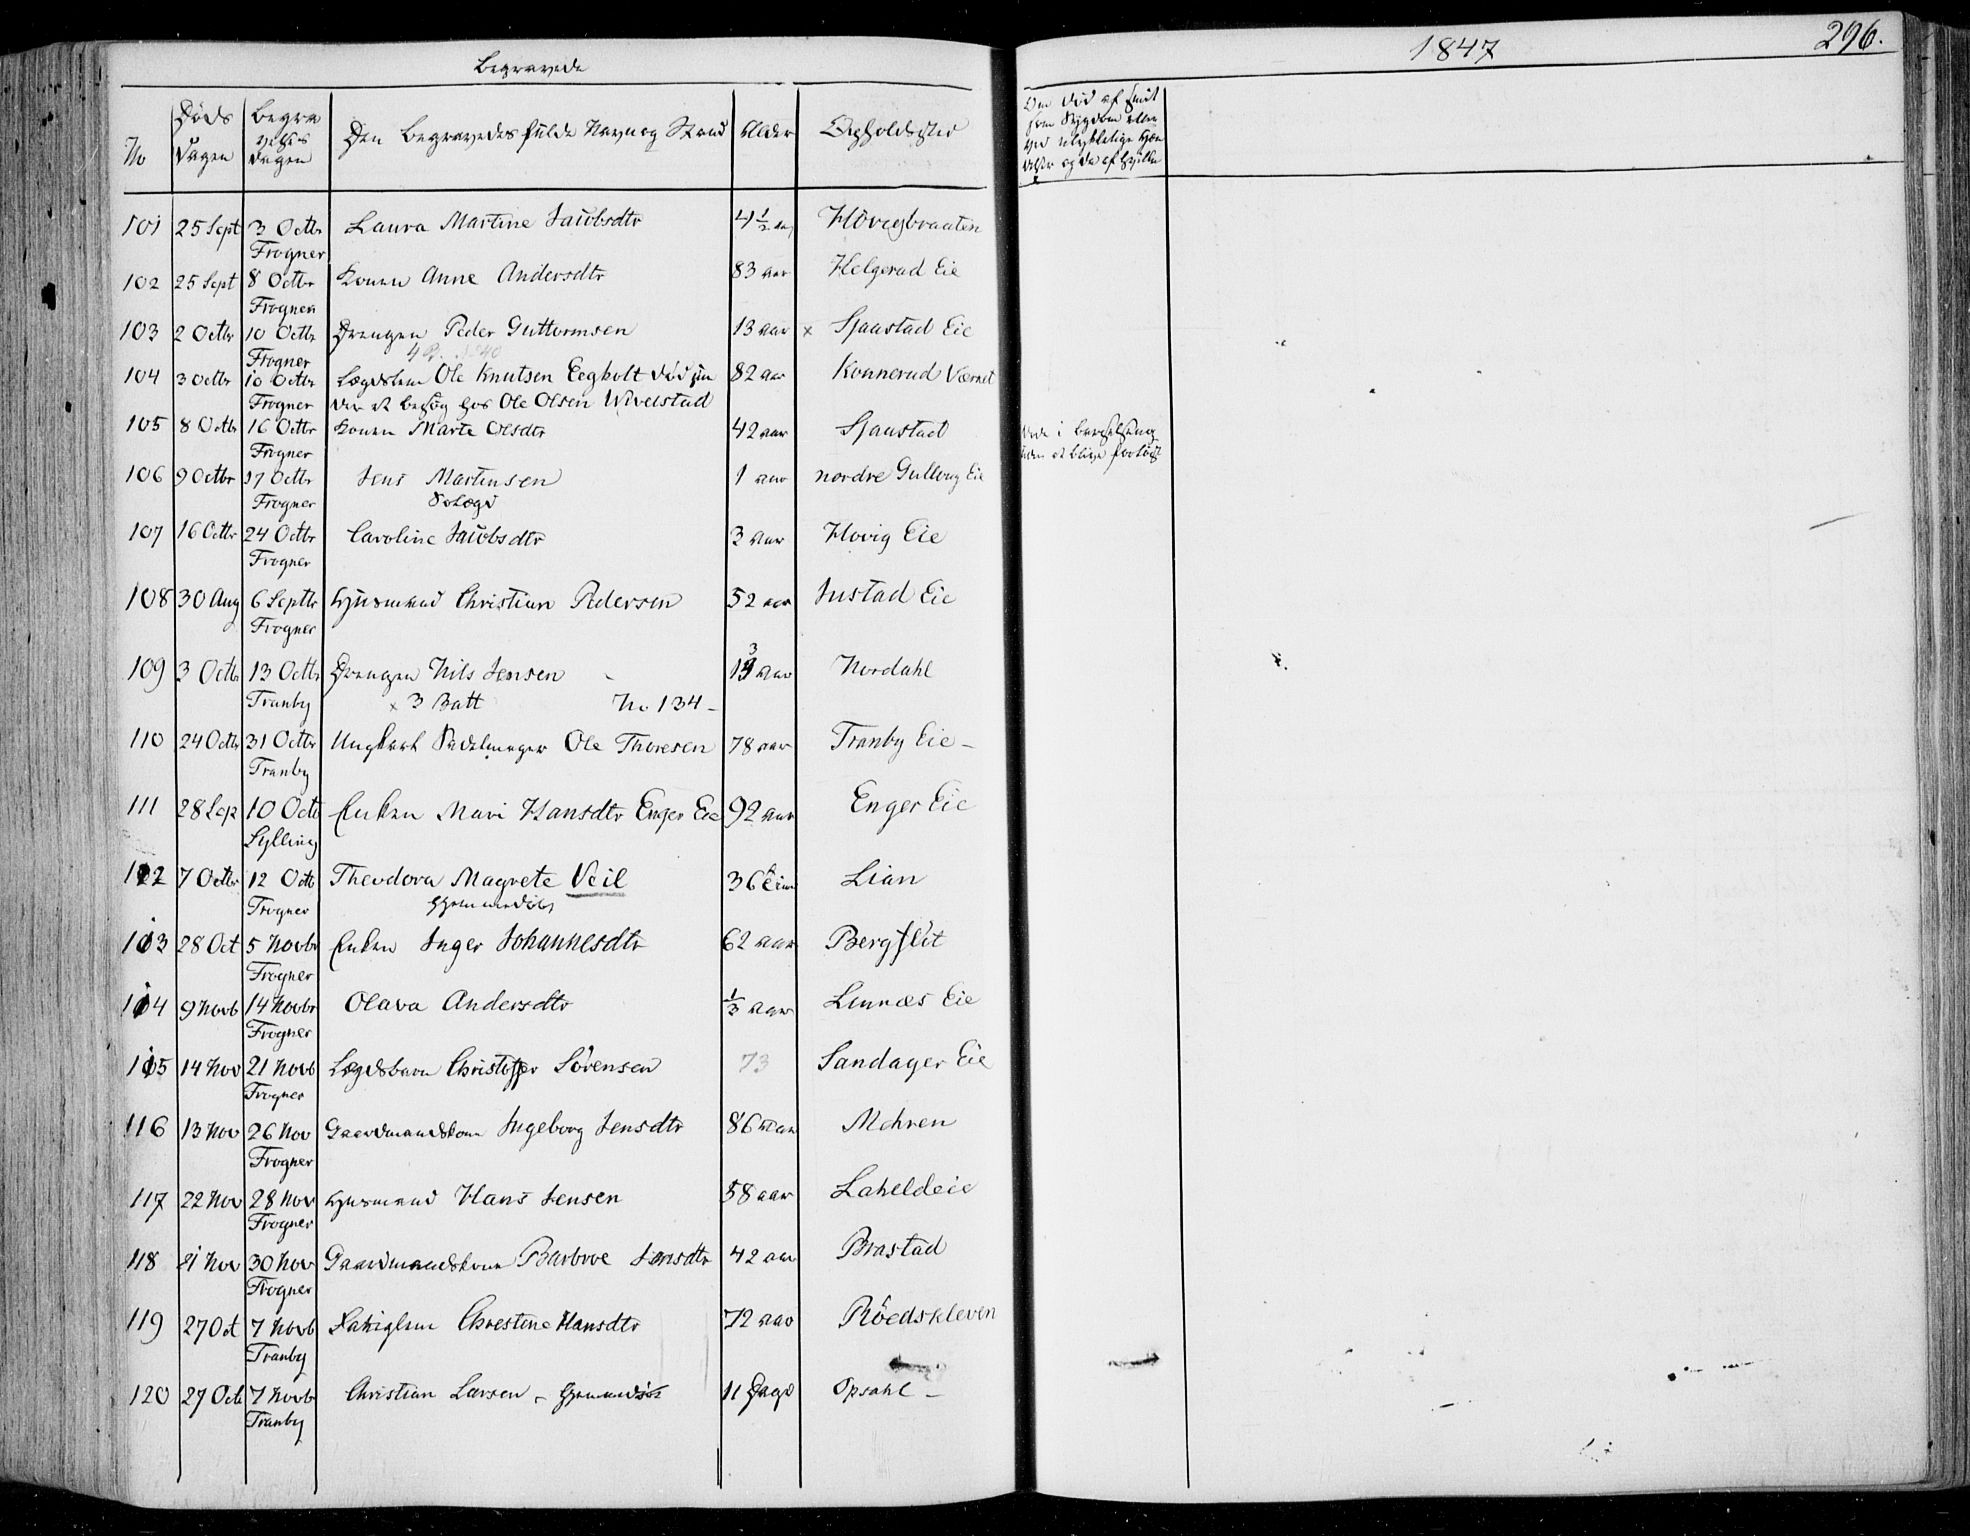 Begravede
1847
296.
No
Døds Dagen
Begravelses Dagen
Den Begravedes fulde Navn og Stand
Alder
Opholdssted
Om død af smit
som Sygdom eller
ved ulykkelige Hæn
delser og da af hvilke
101 25 Sept 3 Octbr Laura Martine Jacobsdtr 4 1/2 Aar Hövigbraaten
Frogner
102 25 Sept 8 Octbr Konen Anne Andersdtr 83 aar Helgerud Eie
Frogner
103 2 Octbr 10 Octbr Drengen Peder Guttormsen 13 aar x Sjaastad Eie
Frogner
104 3 Octbr 10 Octbr Lægdslem Ole Knutsen Eegholt død un 82 aar Konnerud Værnet
Frogner der et besøg hos Ole Olsen Wivelstad
105 8 Octbr 16 Octbr Konen Marte Olsdtr 42 aar Sjaastad Døde i Barselseng
Frogner uden at blive forløst
106 9 Octbr 17 Octbr Jens Martinsen 1 aar nordre Gulloug Eie
Frogner
107 16 Octbr 24 Octbr Caroline Jacobsdtr 3 aar Hovig Eie
Frogner
108 30 Aug 6 Septbr Huusmand Christian Pedersen 52 aar Justad Eie
Frogner
109 3 Octb 13 Octbr Drengen Nils Jensen 13 aar Nordahl
Tranby x 3 Batt No 134 -
110 24 Octbr 31 Octbr Ungkarl Sadelmager Ole Thoresen 78 aar Tranby Eie -
Tranby
111 28 Sep 10 Octb Enken Mari Hansdtr Enger Eie 92 aar Enger Eie
Sylling
112 7 Octbr 12 Octb Theodora Magrete Veil 36 timer Lian
Frogner Hjemmedøbt
113 28 Oct 5 Novbr Enken Inger Johannesdtr 62 aar Bergflit
Frogner
114 9 Novb 14 Novbr Olava Andersdtr 1/3 aar Linnæs Eie
Frogner
115 14 Nov 21 Novb Lægdsbarn Christoffer Sörensen 73 Sandager Eie
Frogner
116 13 Nov 26 Nov Gaardmandskone Ingeborg Jensdtr 86 aar Mehren
Frogner
117 22 Nov 28 Nov Huusmand Hans Jensen 58 aar Laheldeie
Frogner
118 21 Nov 30 Nov Gaardmandskone Barbroe Jensdtr 42 aar Brastad
Frogner
119 27 Oct 7 Novb Fattiglem Christine Hansdtr 72 aar Röedskleven
Tranby
120 27 Octb 7 Novb Christian Larsen - Hjemmedöbt 11 Dage Opsahl -
Tranby